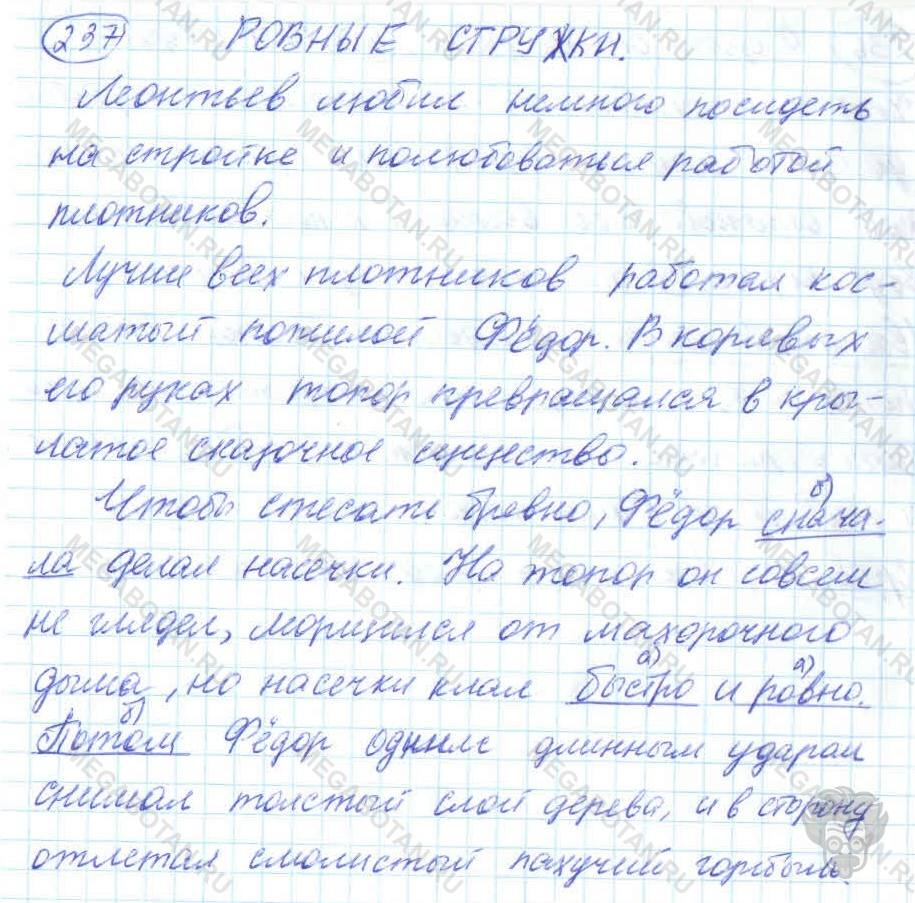 237 РОВНЫЕ СТРУЖКИ.
Леонтьев любил немного посидеть
на стройке и полюбоваться работой
плотников.
Лучше всех плотников работал кос-
матый пожилой Фёдор. В корявых
его руках топор превращался в кры-
латое сказочное существо.
Чтобы стесать бревно, Фёдор снача-
б)
ла делал насечки. На топор он совсем
не глядел, морщился от махорочного
дыма, но насечки клал быстро и ровно.
а) а)
Потом Фёдор одним длинным ударом
б)
снимал толстый слой дерева, и в сторону
отлетал смолистый пахучий горбыль.
MEGABOTAN.RU